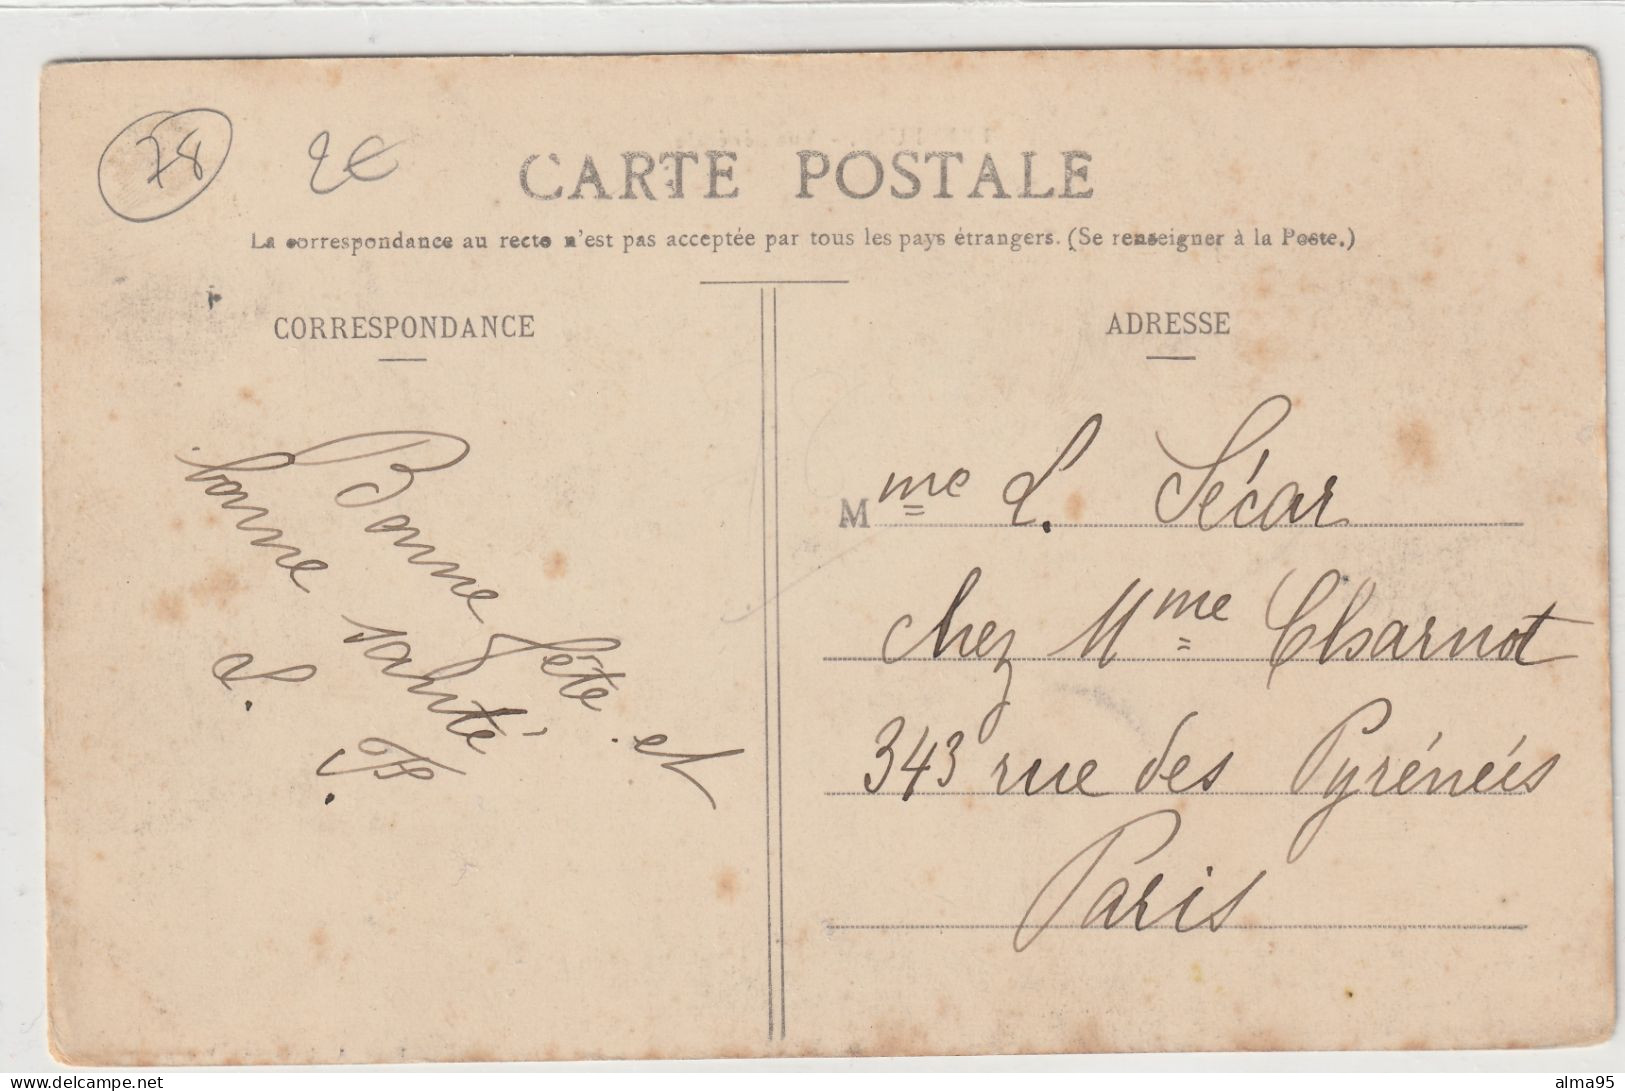 78
2€
CARTE POSTALE
La correspondance au recto n'est pas acceptée par tous les pays étrangers. (Se renseigner à la Poste.)
CORRESPONDANCE
Bonne fête et
bonne santé
L.
ADRESSE
Mme L. Sécar
chez Mme Charnot
343 rue des Pyrénées
Paris
www.delcampe.net
alma95